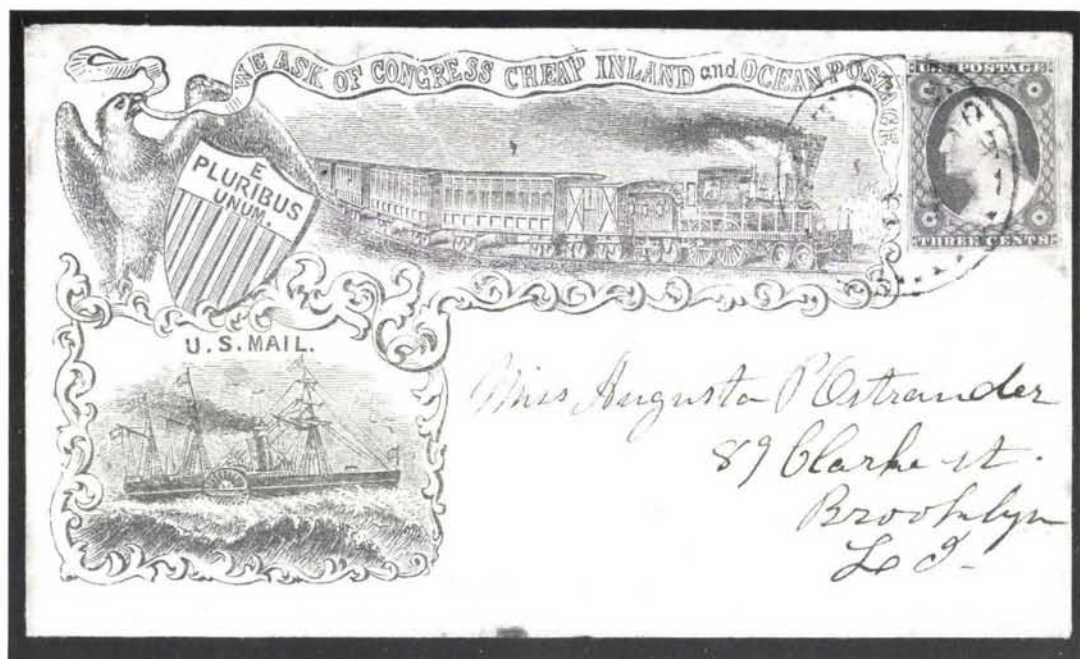 WE ASK OF CONGRESS CHEAP INLAND and OCEAN POSTAGE
U.S. POSTAGE
THREE CENTS
E
PLURIBUS
UNUM.
U.S. MAIL.
Miss Augusta P Ostrander
89 Clarke st.
Brooklyn
L I.